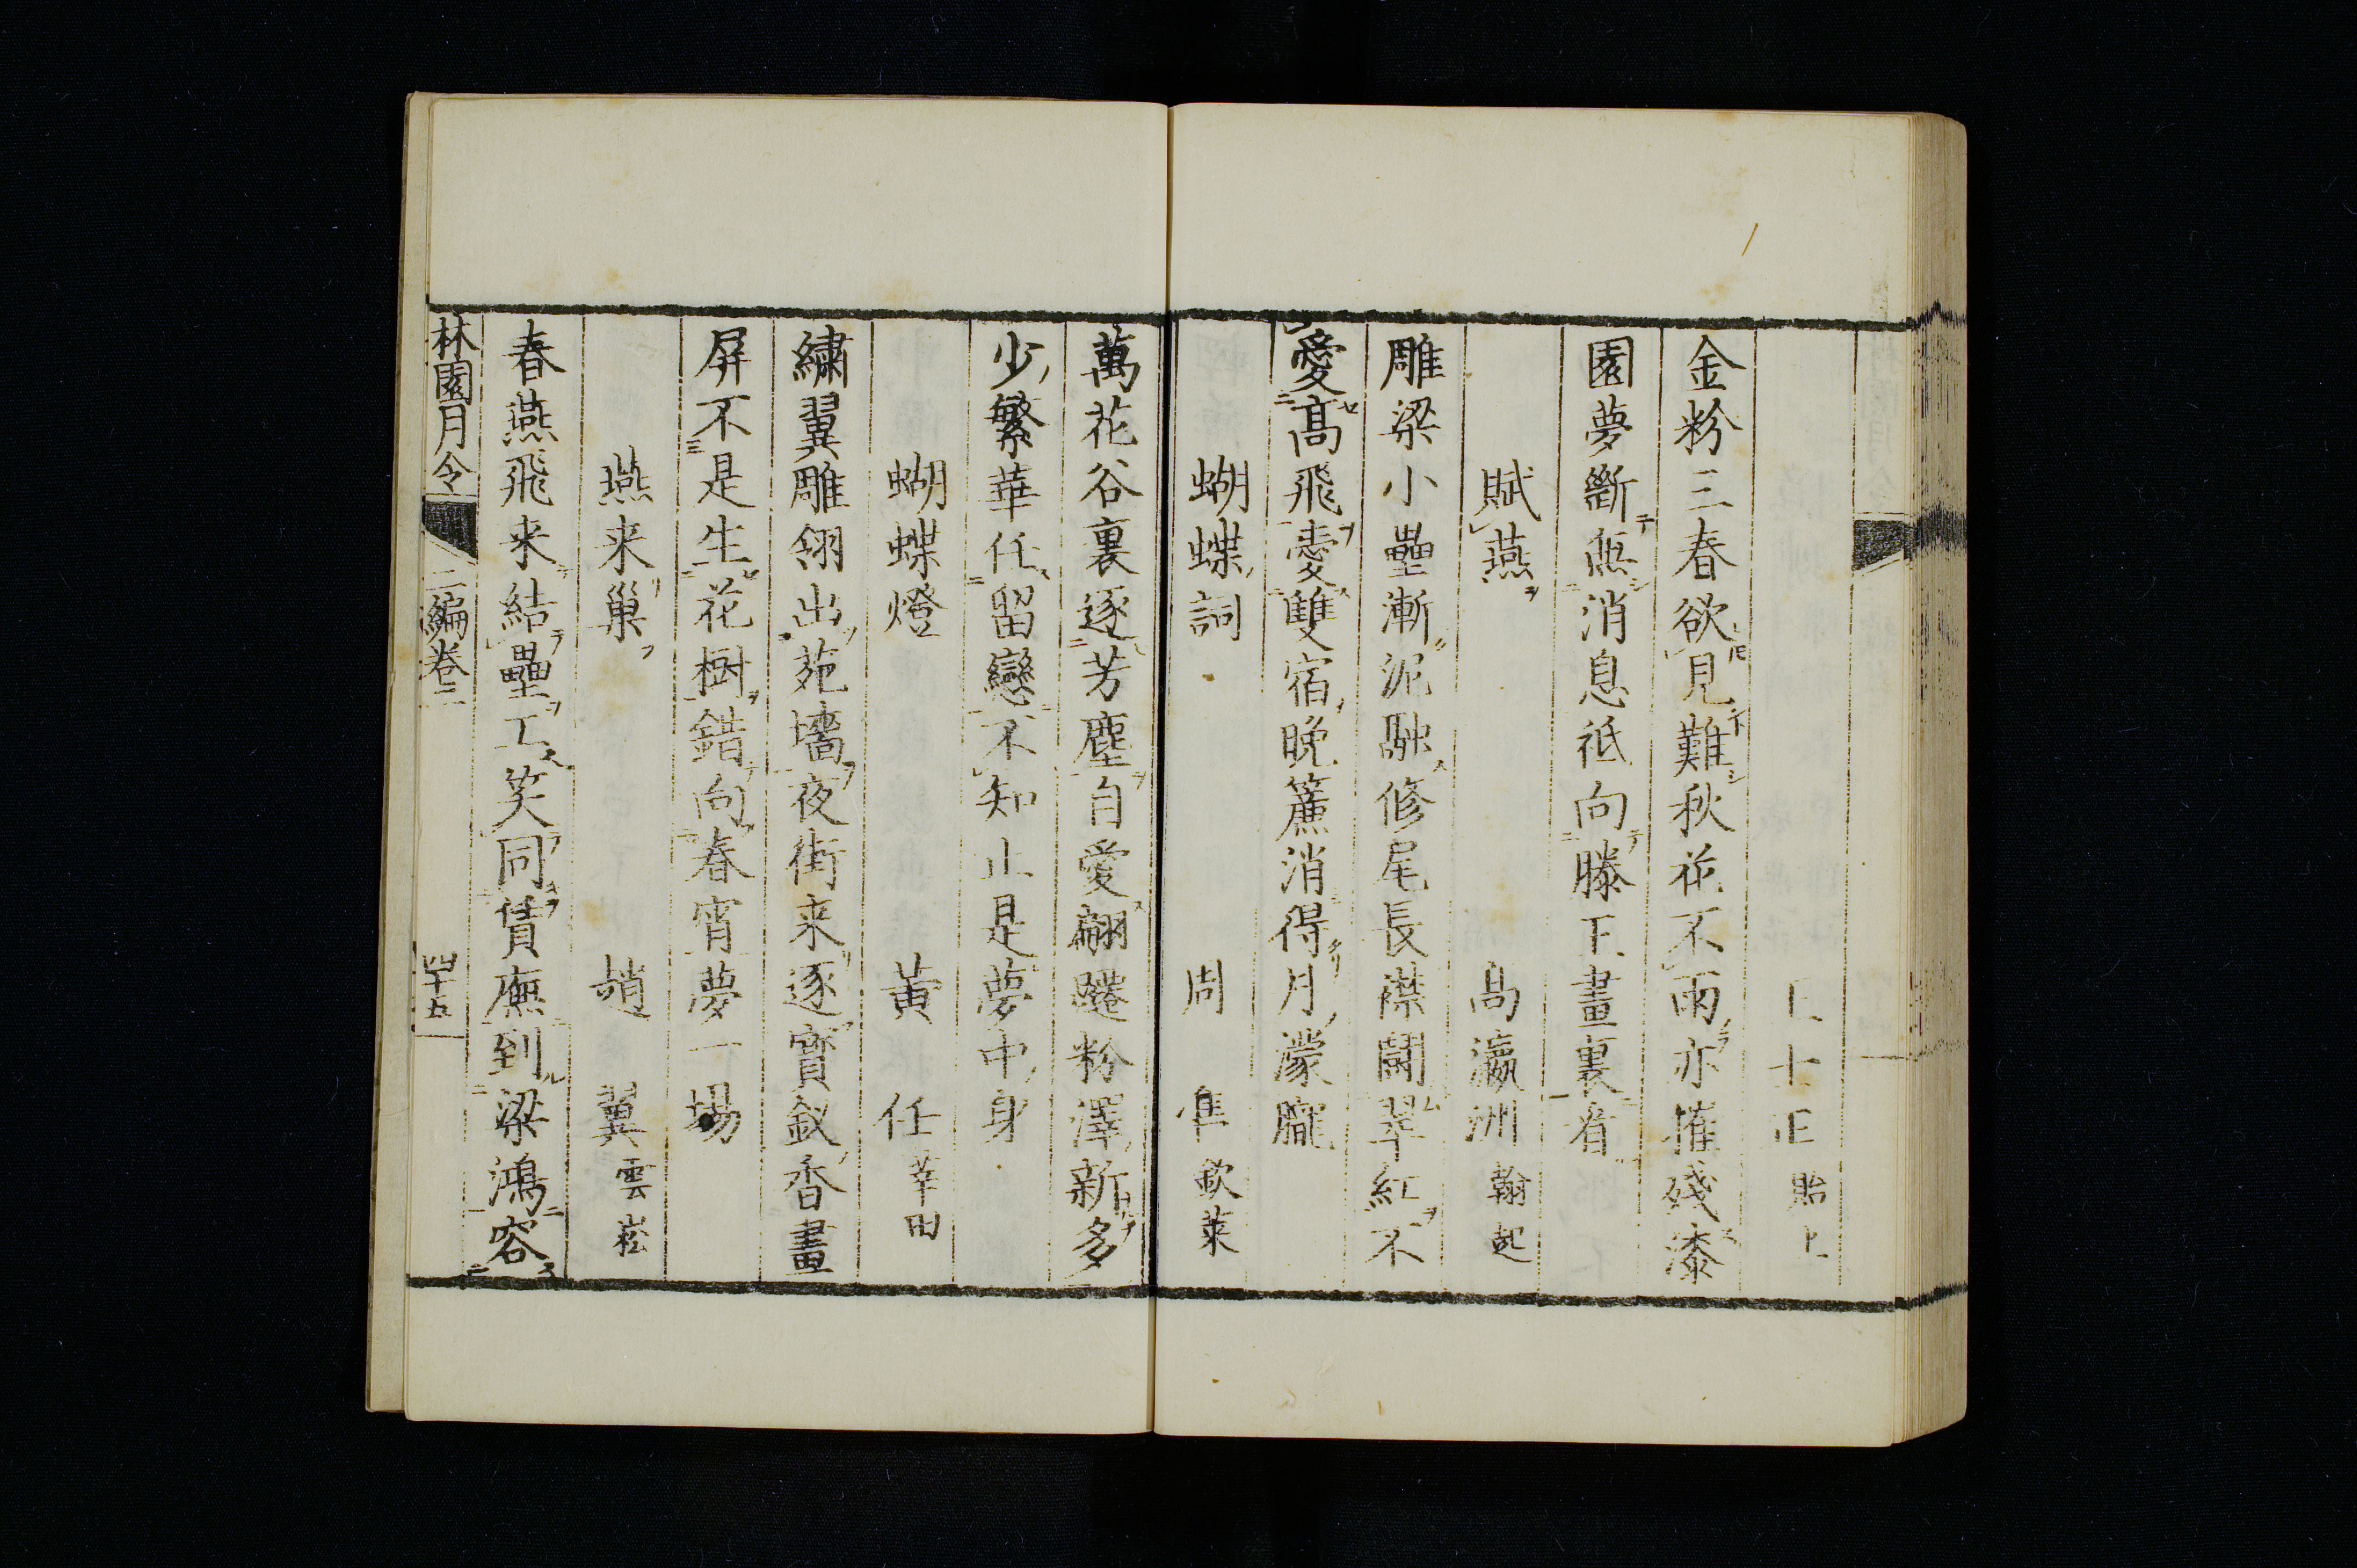 金粉三春欲見難秋花不雨亦摧殘漆
園夢斷無消息祗向滕王畫裏看
賦燕　高瀛洲翰起
雕梁小壘漸泥融修尾長襟鬪翠紅不
愛高飛愛雙宿晚簾消得月濛朧
蝴蝶詞　周隼欽萊
萬花谷裏逐芳塵自愛翩躚粉澤新多
少繁華任留戀不知止是夢中身
蝴蝶燈　黄任莘田
繍翼雕翎出苑墻夜街来逐寶釵香畫
屏不是生花樹錯向春宵夢一場
燕来巢　趙翼雲崧
春燕飛来結壘工笑同賃廡到梁鴻容
林園月令　二編卷二　四十五